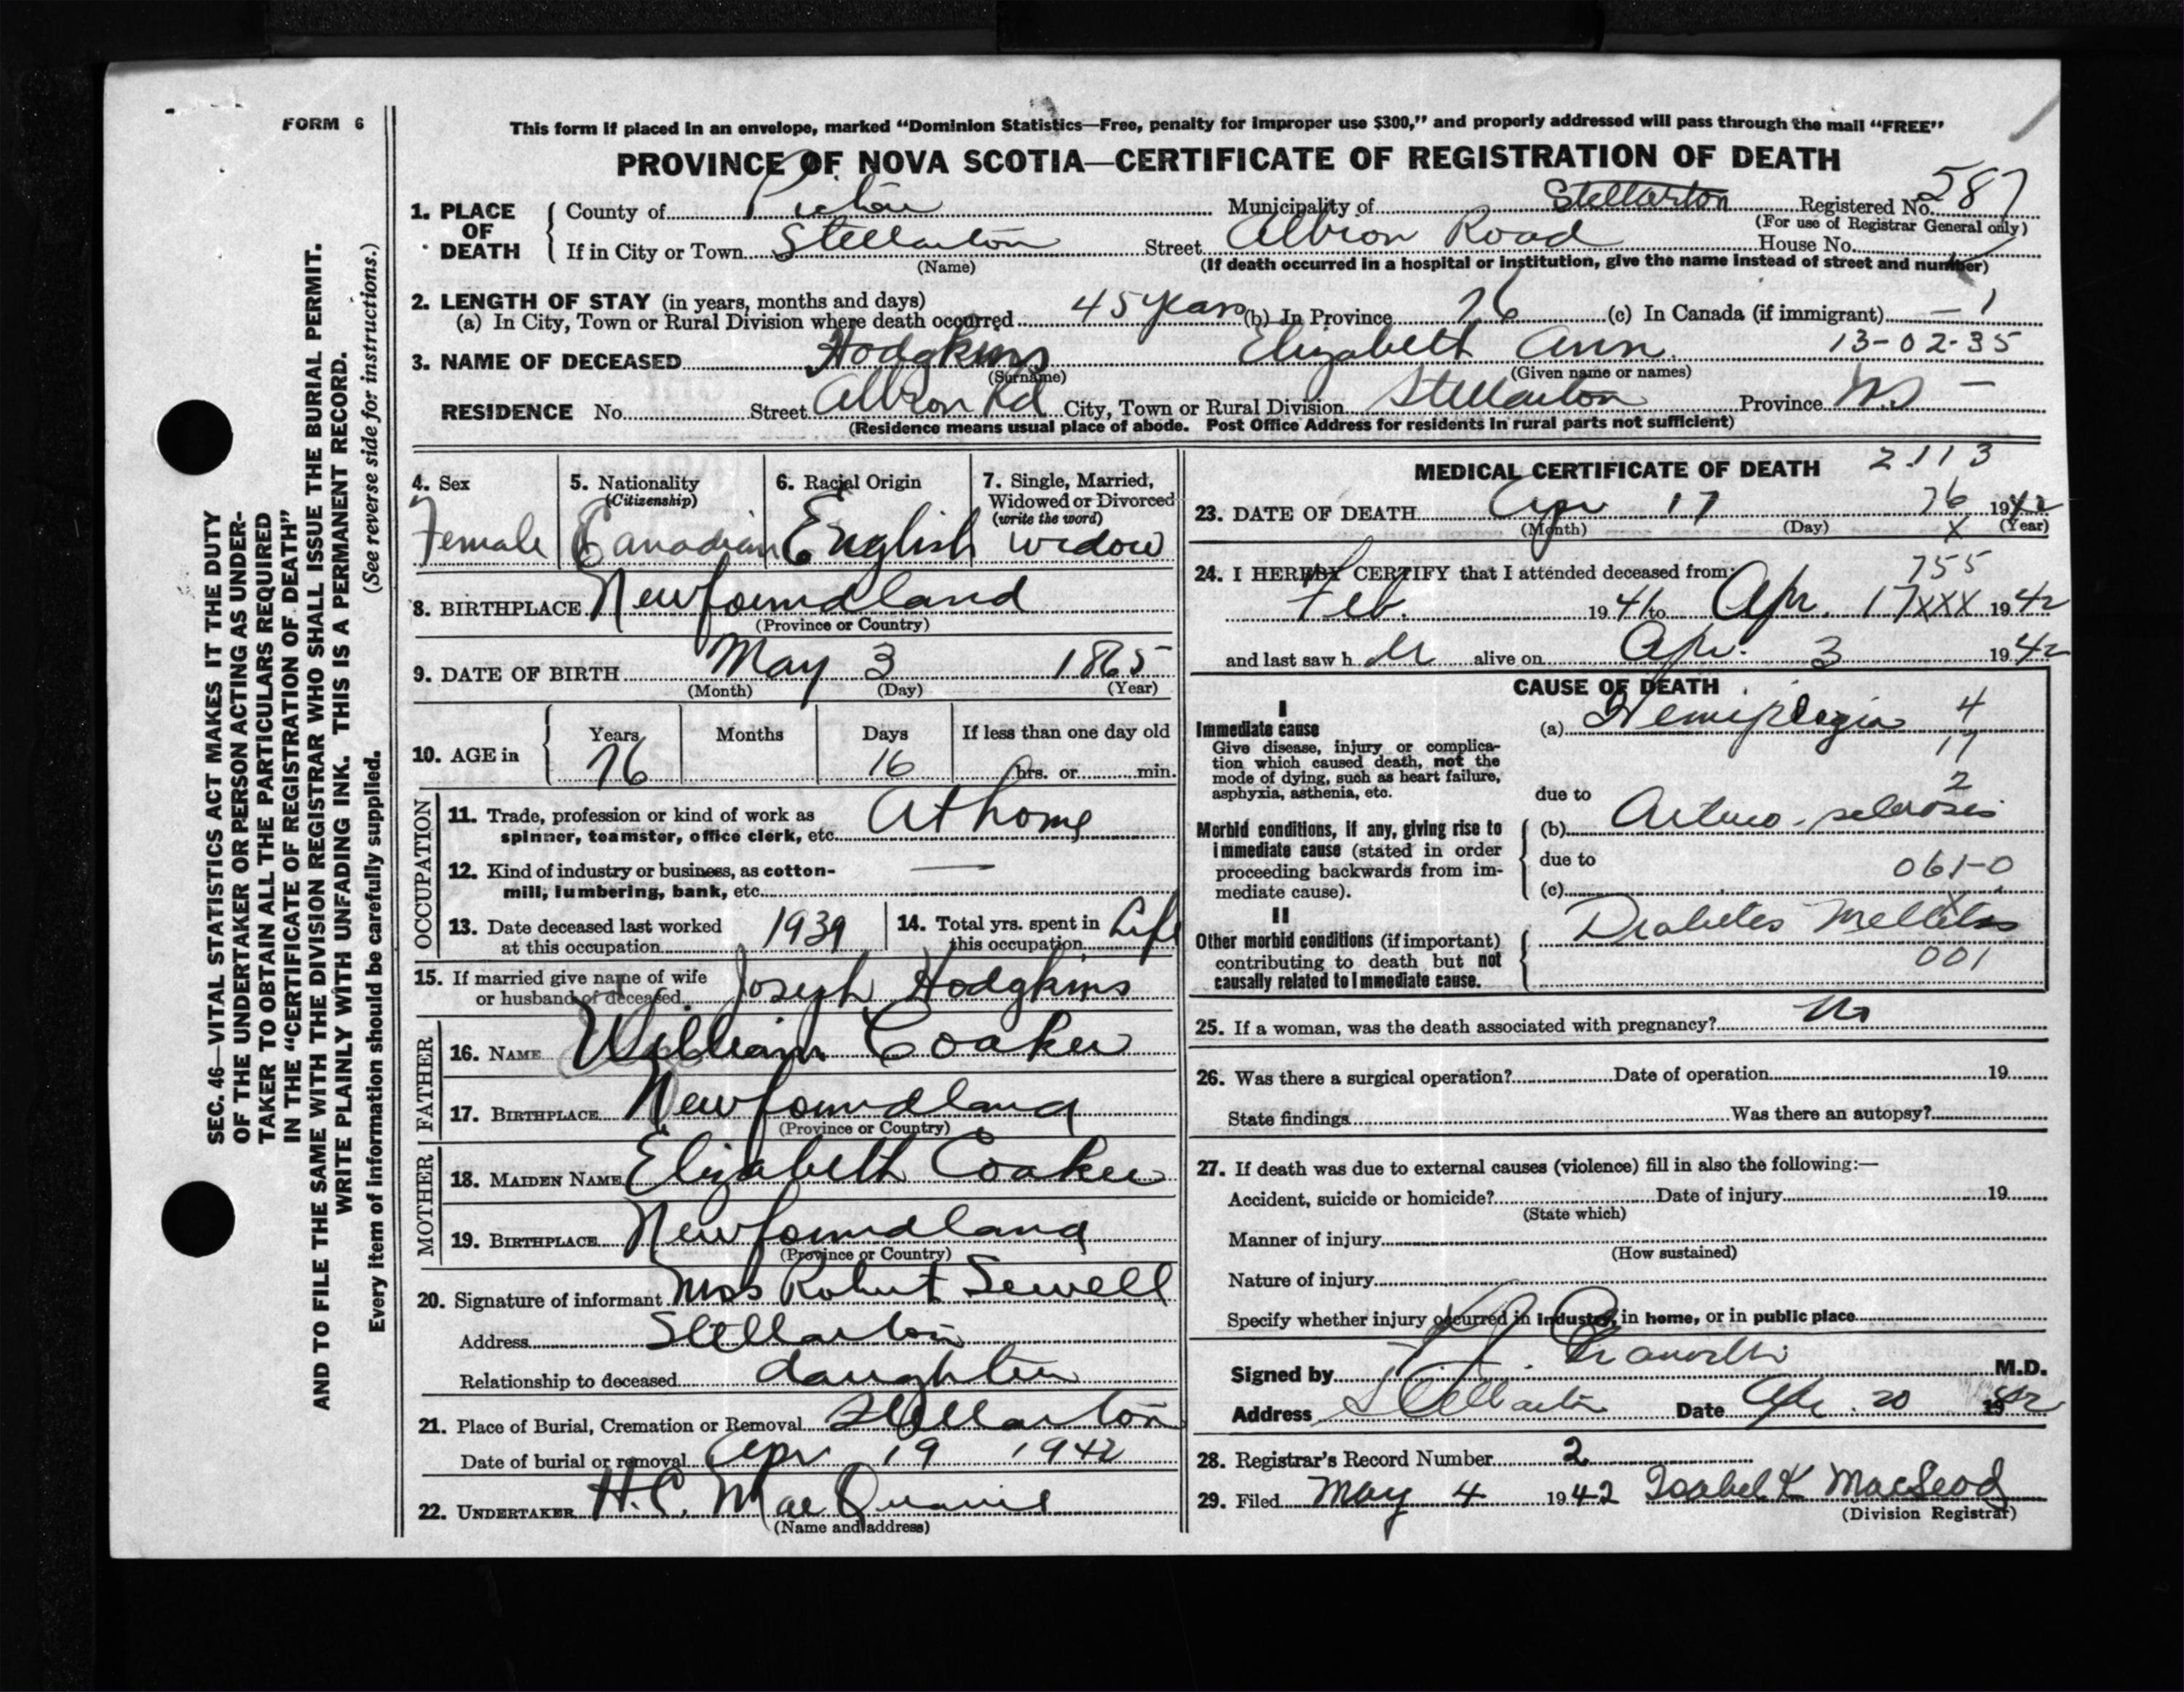 FORM 6
This form if placed in an envelope, marked “Dominion Statistics—Free, penalty for improper use $300,” and properly addressed will pass through the mail “FREE”
PROVINCE OF NOVA SCOTIA—CERTIFICATE OF REGISTRATION OF DEATH
1. PLACE OF DEATH
County of Pictou Municipality of Stellarton Registered No. 587
(For use of Registrar General only)
If in City or Town Stellarton Street Albion Road House No.
(Name) (If death occurred in a hospital or institution, give the name instead of street and number)
2. LENGTH OF STAY (in years, months and days)
(a) In City, Town or Rural Division where death occurred 45 years (b) In Province 76 (c) In Canada (if immigrant) — 1
3. NAME OF DECEASED Hodgkins Elizabeth Ann. 13-02-35
(Surname) (Given name or names)
RESIDENCE No. Street Albion Rd City, Town or Rural Division Stellarton Province N.S —
(Residence means usual place of abode. Post Office Address for residents in rural parts not sufficient)
4. Sex
Female
5. Nationality
(Citizenship)
Canadian
6. Racial Origin
English
7. Single, Married,
Widowed or Divorced
(write the word)
widow
8. BIRTHPLACE Newfoundland
(Province or Country)
9. DATE OF BIRTH May 3 1865
(Month) (Day) (Year)
10. AGE in
Years Months Days If less than one day old
76 16 hrs. or min.
OCCUPATION
11. Trade, profession or kind of work as
spinner, teamster, office clerk, etc. At home
12. Kind of industry or business, as cotton-
mill, lumbering, bank, etc. —
13. Date deceased last worked
at this occupation 1939
14. Total yrs. spent in
this occupation Life
15. If married give name of wife
or husband of deceased Joseph Hodgkins
FATHER
16. NAME William Coaker
17. BIRTHPLACE Newfoundland
(Province or Country)
MOTHER
18. MAIDEN NAME Elizabeth Coaker
19. BIRTHPLACE Newfoundland
(Province or Country)
20. Signature of informant Mrs Robert Sewell
Address Stellarton
Relationship to deceased daughter
21. Place of Burial, Cremation or Removal Stellarton
Date of burial or removal Apr 19 1942
22. UNDERTAKER H.C. MacQuarrie
(Name and address)
MEDICAL CERTIFICATE OF DEATH 2113
23. DATE OF DEATH Apr 17 76 1942
(Month) (Day) x (Year)
24. I HEREBY CERTIFY that I attended deceased from: 755
Feb. 1941 to Apr. 17 XXX 1942
and last saw h er alive on Apr. 3 1942
CAUSE OF DEATH
I
Immediate cause
Give disease, injury or complica-
tion which caused death, not the
mode of dying, such as heart failure,
asphyxia, asthenia, etc.
(a) Hemiplegia 4
17
2
due to
Morbid conditions, if any, giving rise to
immediate cause (stated in order
proceeding backwards from im-
mediate cause).
(b) Arterio-sclerosis
due to
061-0
(c)
x
II
Other morbid conditions (if important)
contributing to death but not
causally related to immediate cause.
Diabetes Mellitus
001
25. If a woman, was the death associated with pregnancy? No
26. Was there a surgical operation? Date of operation 19
State findings Was there an autopsy?
27. If death was due to external causes (violence) fill in also the following:—
Accident, suicide or homicide? Date of injury 19
(State which)
Manner of injury
(How sustained)
Nature of injury
Specify whether injury occurred in industry, in home, or in public place
Signed by M.D.
Address Stellarton Date Apr. 20 1942
28. Registrar's Record Number 2
29. Filed May 4 1942 Isabel K MacLeod
(Division Registrar)
SEC. 46—VITAL STATISTICS ACT MAKES IT THE DUTY
OF THE UNDERTAKER OR PERSON ACTING AS UNDER-
TAKER TO OBTAIN ALL THE PARTICULARS REQUIRED
IN THE “CERTIFICATE OF REGISTRATION OF DEATH”
AND TO FILE THE SAME WITH THE DIVISION REGISTRAR WHO SHALL ISSUE THE BURIAL PERMIT.
WRITE PLAINLY WITH UNFADING INK. THIS IS A PERMANENT RECORD.
Every item of information should be carefully supplied. (See reverse side for instructions.)